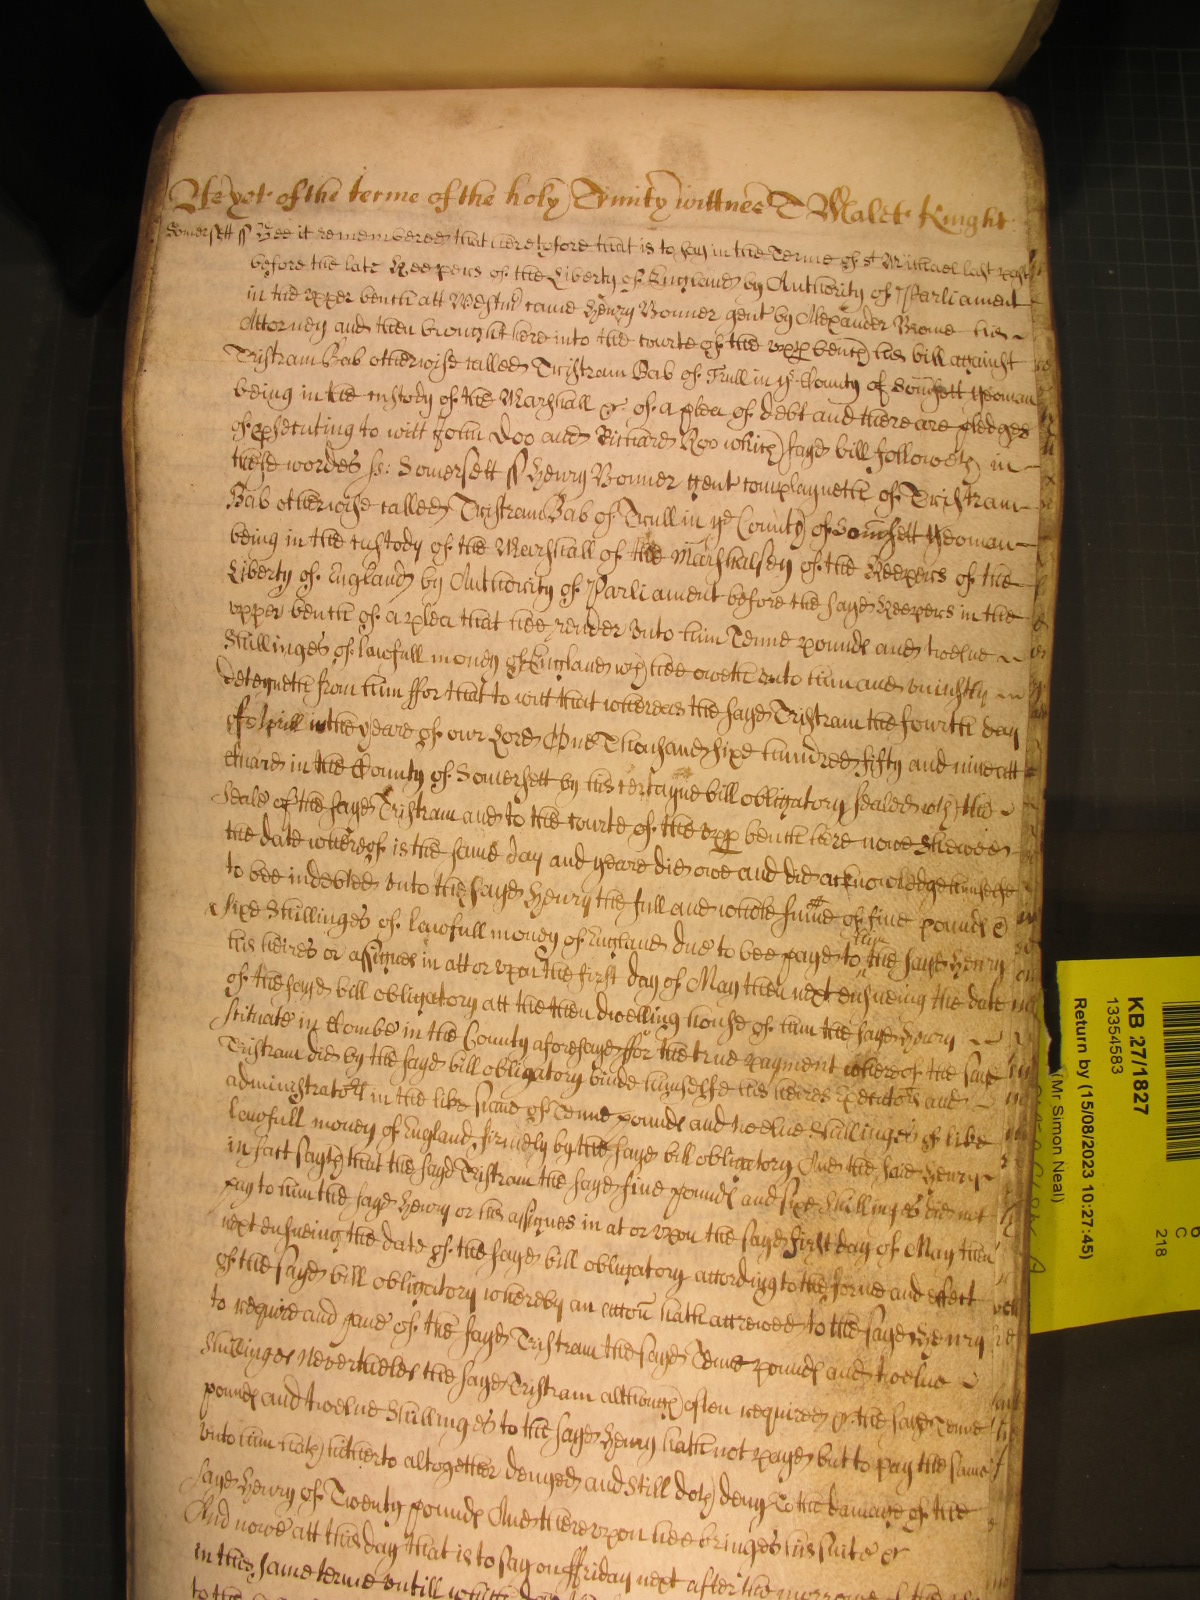 As yet of the terme of the holy Trinity wittnes T Malet Knight
Somersett ss Bee it remembered that heretofore that is to say in the Terme of St Michael last past
before the late Keepers of the Liberty of England by Authority of Parliament
in the upper bench att Westmr came Henry Bonner gent by Alexander Brome his
Attorney and then brought here into the courte of the upper bench his bill against
Tristram Bab otherwise called Tristram Bab of Trull in ye County of Somsett Yeoman
being in the custody of the Marshall &c of a plea of debt and there are pledges
of psecuting to witt John Doo and Richard Roo which sayd bill followeth in
these wordes ss: Somersett ss Henry Bonner gent complayneth of Tristram
Bab otherwise called Tristram Bab of Trull in ye County of Somsett Yeoman
being in the custody of the Marshall of the Marshalsey of the Keepers of the
Liberty of England by Authority of Parliament before the sayd Keepers in the
upper bench of a plea that hee render unto him Tenne pounds and twelve
Shillinges of lawfull money of England wch hee oweth unto him and uniustly
deteyneth from him ffor that to witt that whereas the sayd Tristram the fourth day
of Aprill in the yeare of our Lord One Thousand sixe hundred fifty and nine att
in the County of Somersett by his certayne bill obligatory sealed with the
seale of the sayd Tristram and to the courte of the upp bench here nowe shewed
the date whereof is the same day and yeare did owe and did acknowledge himselfe
to bee indebted unto the sayd Henry the full and whole sume of five pounds &
sixe Shillinges of lawfull money of England due to bee payd to him the sayd Henry
his heires or assignes in att or upon the first day of May then next ensueing the date
of the sayd bill obligatory att the then dwelling house of him the sayd Henry
scituate in Combe in the County aforesayd ffor the true payment whereof the sayd
Tristram did by the sayd bill obligatory binde himselfe his heires Executors and
administrators in the like sume of Tenne pounds and twelve Shillinges of like
lawfull money of England firmely by the sayd bill obligatory And the said Henry
in fact sayth that the sayd Tristram the sayd five pounds and sixe Shillinges did not
pay to him the sayd Henry or his assignes in at or upon the sayd first day of May then
next ensueing the date of the sayd bill obligatory according to the forme and effect
of the sayd bill obligatory whereby an accon hath accrewed to the sayd Henry
to require and have of the sayd Tristram the sayd Tenne pounds and twelve
Shillinges Neverthelesse the sayd Tristram although often required &c the sayd Tenne
pounds and twelve Shillinges to the sayd Henry hath not payd but to pay the same
unto him hath hitherto altogether denyed and still doth deny To the damage of the
sayd Henry of Twenty pounds And thereupon hee bringes his suite &c
And nowe att this day that is to say on ffriday next after the morrowe of the
in this same terme untill which day
KB 27/1827
13354583
Return by (15/08/2023 10:27:45)
(Mr Simon Neal)
C
218